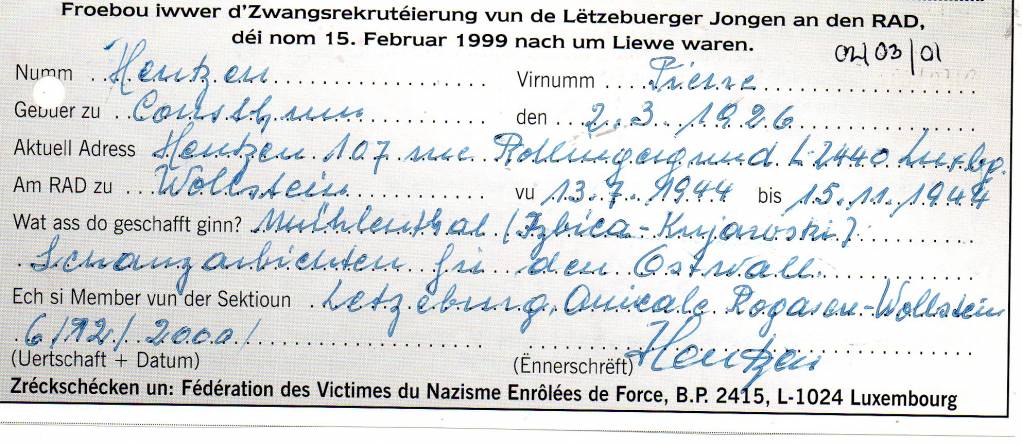 Froebou iwwer d'Zwangsrekrutéierung vun de Lëtzebuerger Jongen an den RAD,
déi nom 15. Februar 1999 nach um Liewe waren.
02/03/01
Numm Hentzen Virnumm Pierre
Gebuer zu Consthum den 2.3.1926
Aktuell Adress Hentzen 107 rue Rollingergrund L-2440 Luxbg.
Am RAD zu Wollstein vu 13.7.1944 bis 15.11.1944
Wat ass do geschafft ginn? Mühlenthal (Izbica-Kujawski)
Schanzarbichten fir den Ostwall
Ech si Member vun der Sektioun Letzeburg, Amicale Rogasen-Wollstein
6/12/2000/
(Uertschaft + Datum) (Ënnerschrëft) Hentzen
Zréckschécken un: Fédération des Victimes du Nazisme Enrôlées de Force, B.P. 2415, L-1024 Luxembourg